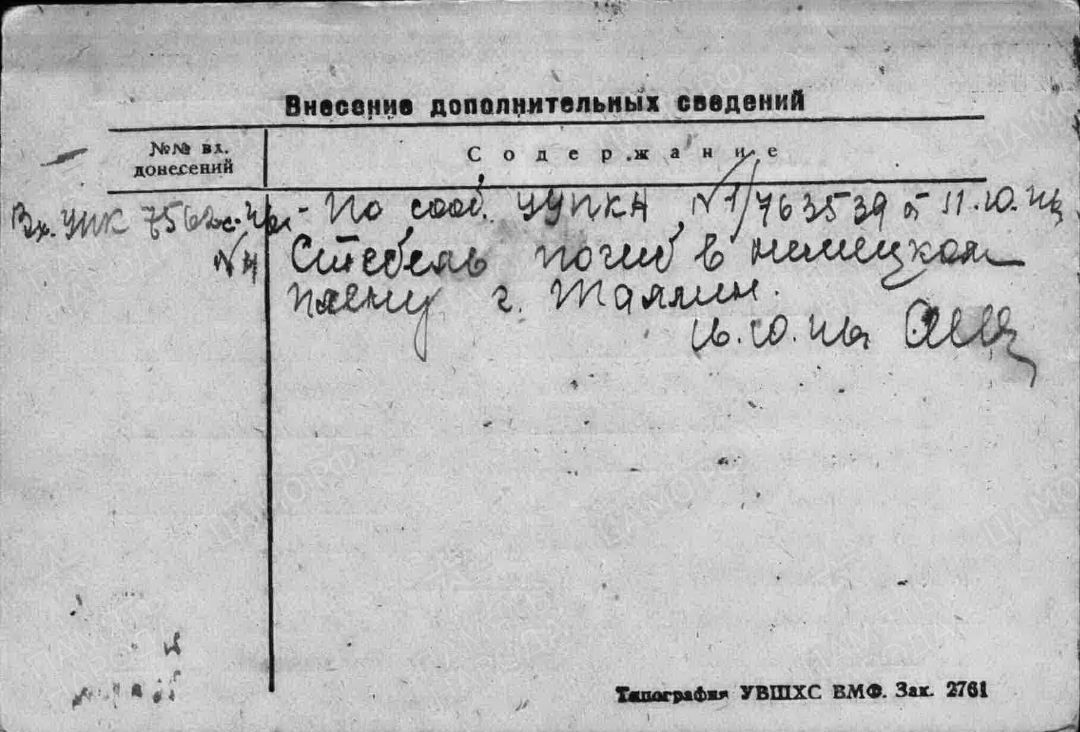 Внесение дополнительных сведений
№№ вх.
донесений
Содержание
Вх. УПК 7562с.
По сооб. УУПКА №1/763539 от 11.10.
Стебель погиб в немецком
плену г. Таллин.
16.10.
Типография УВШХС ВМФ. Зак. 2761